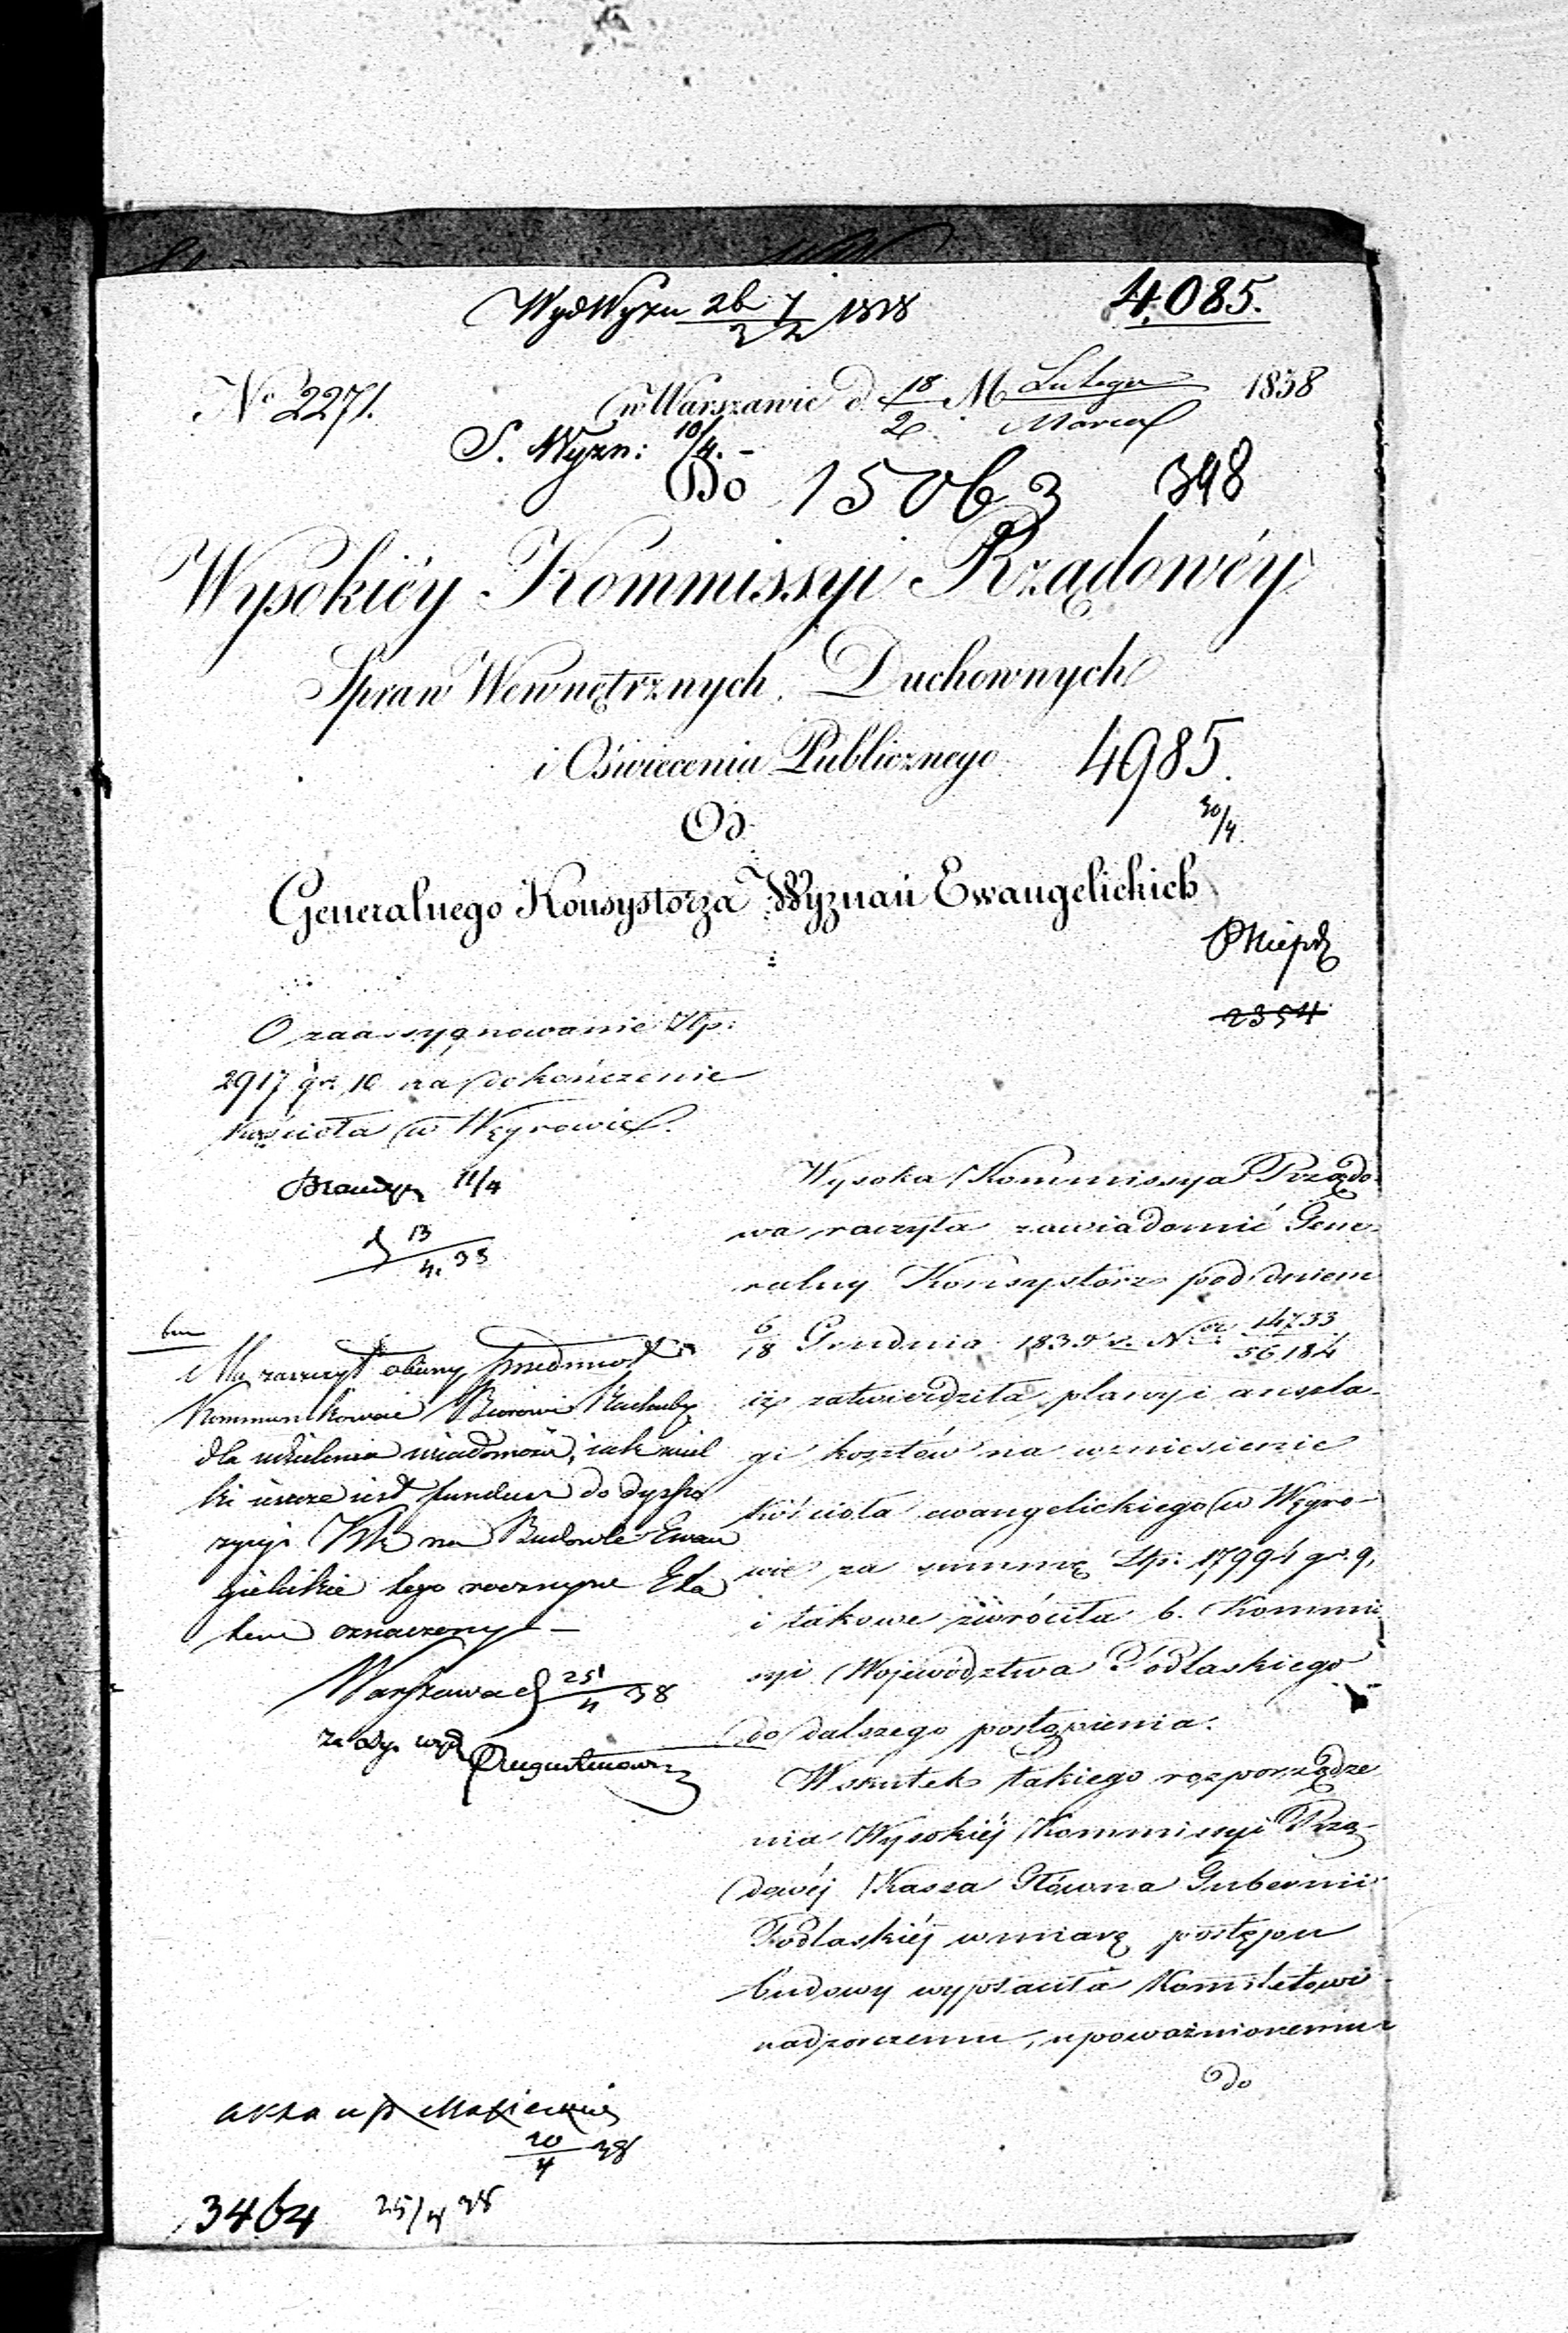 4,085.
WydWyzn 26/3 1838
No 2271.
w Warszawie d. 18/2 M Lutego/Marca 1838
S. Wyzn: 10/4. -
Do 15063 348
Wysokiéy Kommissyi Rządowéy
Spraw Wewnętrznych, Duchownych
i Oświecenia Publicznego
4985.
30/4.
Od
Generalnego Konsystorza Wyznań Ewangelickich
2354
O zaassygnowanie Złp:
2917 gr. 10 na dokończenie
kościoła w Węgrowie.
11/4
13/4. 38
Wysoka Kommissya Rządo-
wa raczyła zawiadomić Gene-
ralny Konsystorz pod dniem
6/18 Grudnia 1835 r. Nor 14733/56184
iż zatwierdziła plany i anszla-
gi kosztów na wzniesienie
kościoła ewangelickiego w Węgro-
wie za summę Złp. 17994 gr. 9,
i takowe zwróciła b. Kommis
syi Województwa Podlaskiego
do dalszego postąpienia.
Wskutek takiego rozporządze
nia Wysokiéj Kommissyi Rzą-
dowéj Kassa Główna Gubernii
Podlaskiéj w miarę postępu
budowy wypłaciła Komitetowi
nadzorczemu, upoważnionemu
do
Ma zaszczyt obecny przedmiot
Kommunikować Biórowi Rachuby
dla udzielenia wiadomości, jak wiel
ki ieszcze iest fundusz do dyspo
zycyi KRk na Budowle Ewan
gielickie tego rocznym Eta
tem oznaczony -
Warszawa d 25/4 38
Augustinowicz
akta u p Maciejewie
20/4 38
3464 25/4 38